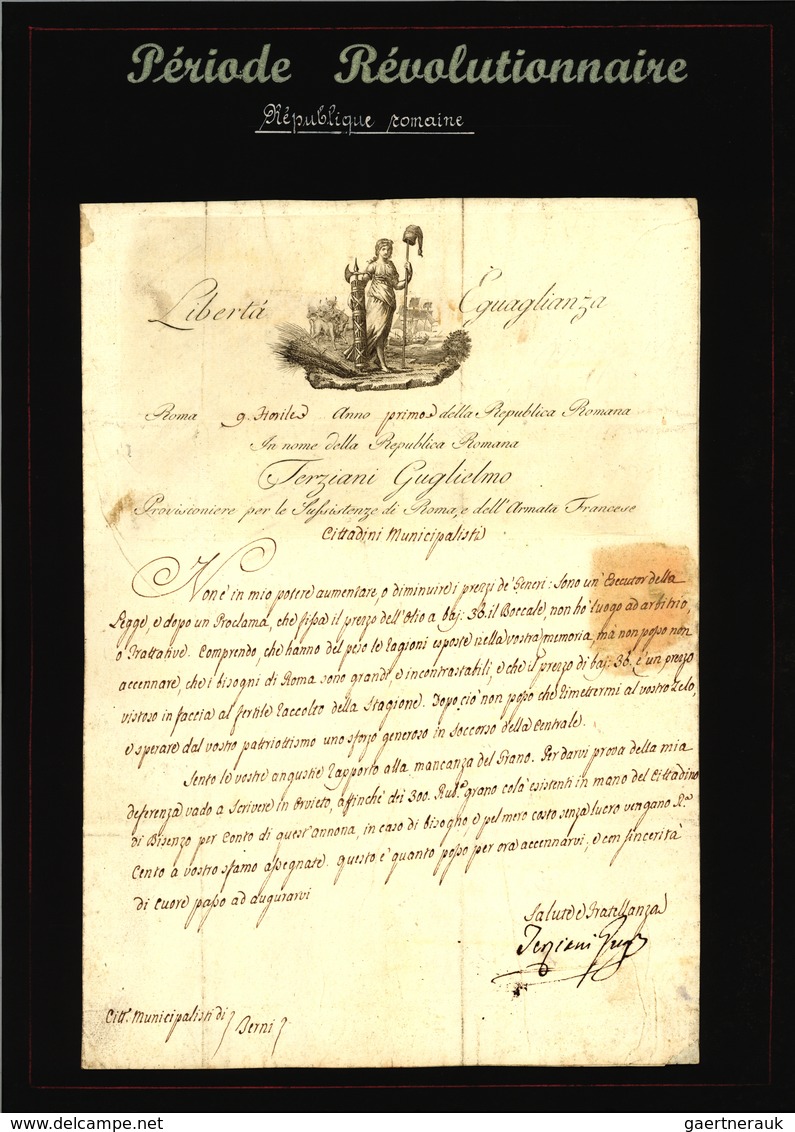 Période Révolutionnaire
République romaine
Libertá Eguaglianza
Roma 9. Florile Anno primo della Republica Romana
In nome della Republica Romana
Terziani Guglielmo
Provisioniere per le Sussistenze di Roma, e dell'Armata Francese
Cittadini Municipalisti
Non è in mio potere aumentare, o diminuire i prezzi de' Generi: Sono un' Esecutor della
Legge, e dopo un Proclama, che fissa il prezzo dell'Olio a baj: 36. il Boccale, non hò luogo ad arbitrio,
o Trattative. Comprendo, che hanno del peso le ragioni esposte nella vostra memoria, mà non posso non
accennare, che i bisogni di Roma sono grandi, e incontrastabili, e che il prezzo di baj: 36. é un prezzo
vistoso in faccia al fertile raccolto della Stagione. Dopo ciò non posso che rimettermi al vostro Zelo,
e sperare dal vostro patriottismo uno sforzo generoso in soccorso della Centrale.
Sento le vostre angustie rapporto alla mancanza del Grano. Per darvi prova della mia
deferenza vado a scrivere in Orvieto, affinchè dei 300. Rub. grano colà esistenti in mano del Cittadino
di Bisenzo per conto di quest'annona, in caso di bisogno, e pel mero costo senza lucro vengano R.
Cento a vostro sfamo assegnate. questo è quanto posso per ora accennarvi, e con sincerità
di Cuore passo ad augurarvi
Salute e Fratellanza
Terziani Gug
Citt. Municipalisti di
Terni
gaertnerauk